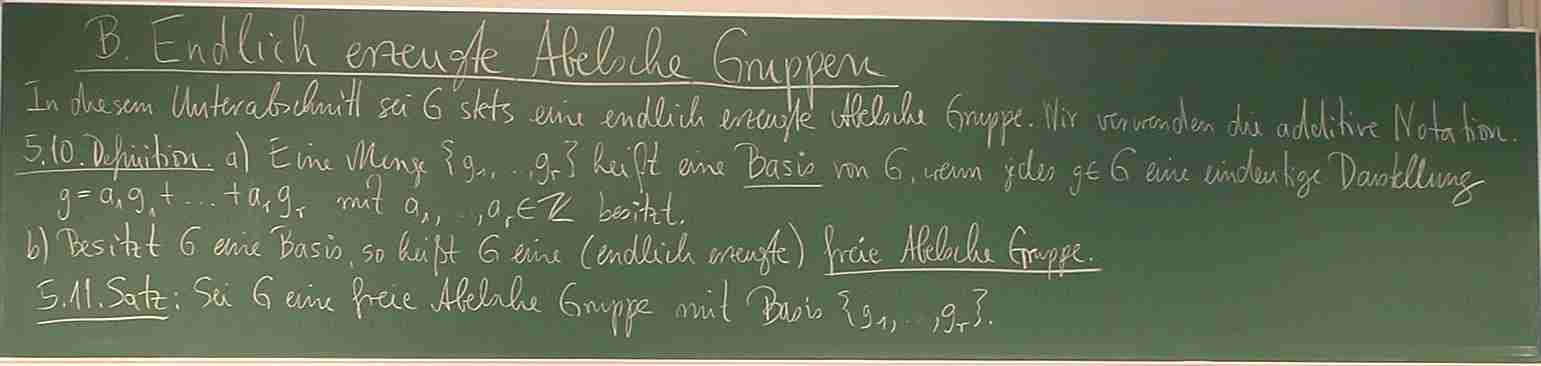 B. Endlich erzeugte Abelsche Gruppen
In diesem Unterabschnitt sei G stets eine endlich erzeugte Abelsche Gruppe. Wir verwenden die additive Notation.
5.10. Definition. a) Eine Menge {g₁,...,gᵣ} heißt eine Basis von G, wenn jedes g∈G eine eindeutige Darstellung
g=a₁g₁+...+aᵣgᵣ mit a₁,...,aᵣ∈ℤ besitzt.
b) Besitzt G eine Basis, so heißt G eine (endlich erzeugte) freie Abelsche Gruppe.
5.11. Satz: Sei G eine freie Abelsche Gruppe mit Basis {g₁,...,gᵣ}.